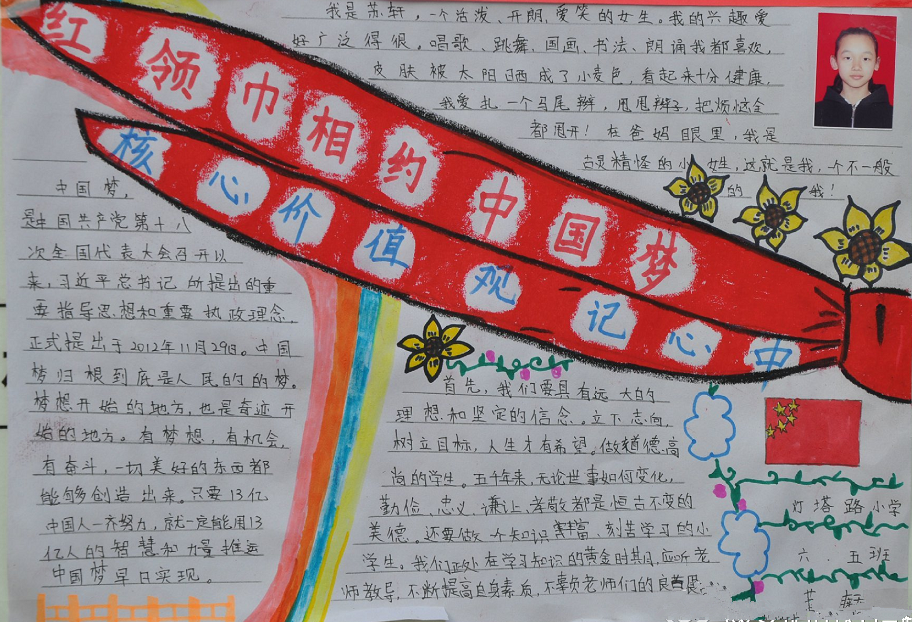 红领巾相约中国梦
核心价值观记心中
我是苏轩，一个活泼、开朗，爱笑的女生。我的兴趣爱
好广泛得很。唱歌、跳舞、国画、书法、朗诵我都喜欢，
皮肤被太阳晒成了小麦色，看起来十分健康，
我爱扎一个马尾辫，甩甩辫子，把烦恼全
都甩开！在爸妈眼里，我是
古灵精怪的小女生，这就是我，一个不一般
的我！
中国梦，
是中国共产党第十八
次全国代表大会召开以
来，习近平总书记所提出的重
要指导思想和重要执政理念，
正式提出于2012年11月29日。中国
梦归根到底是人民的的梦。
梦想开始的地方，也是奇迹开
始的地方。有梦想，有机会，
有奋斗，一切美好的东西都
能够创造出来。只要13亿
中国人一齐努力，就一定能用13
亿人的智慧和力量推运
中国梦早日实现。
首先，我们要具有远大的
理想和坚定的信念。立下志向，
树立目标，人生才有希望。做道德高
尚的学生。五千年来，无论世事如何变化，
勤俭、忠义、谦让、孝敬都是恒古不变的
美德。还要做个知识丰富、刻苦学习的小
学生。我们正处在学习知识的黄金时期，应听老
师教导，不断提高自身素质，不辜负老师们的良苦
灯塔路小学
六 五班
轩